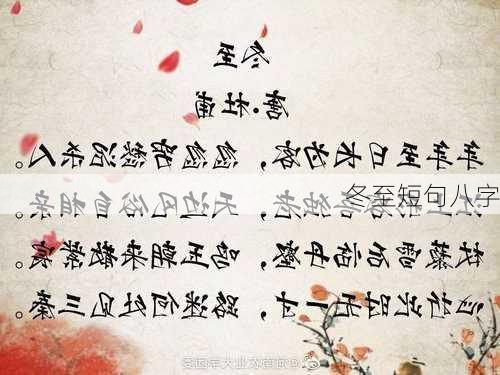 冬至
唐·杜甫
年年至日长为客，忽忽穷愁泥杀人。
江上形容吾独老，天边风俗自相亲。
冬至短句八字
杖藜雪后临丹壑，鸣玉朝来散紫宸。
心折此时无一寸，路迷何处见三秦。